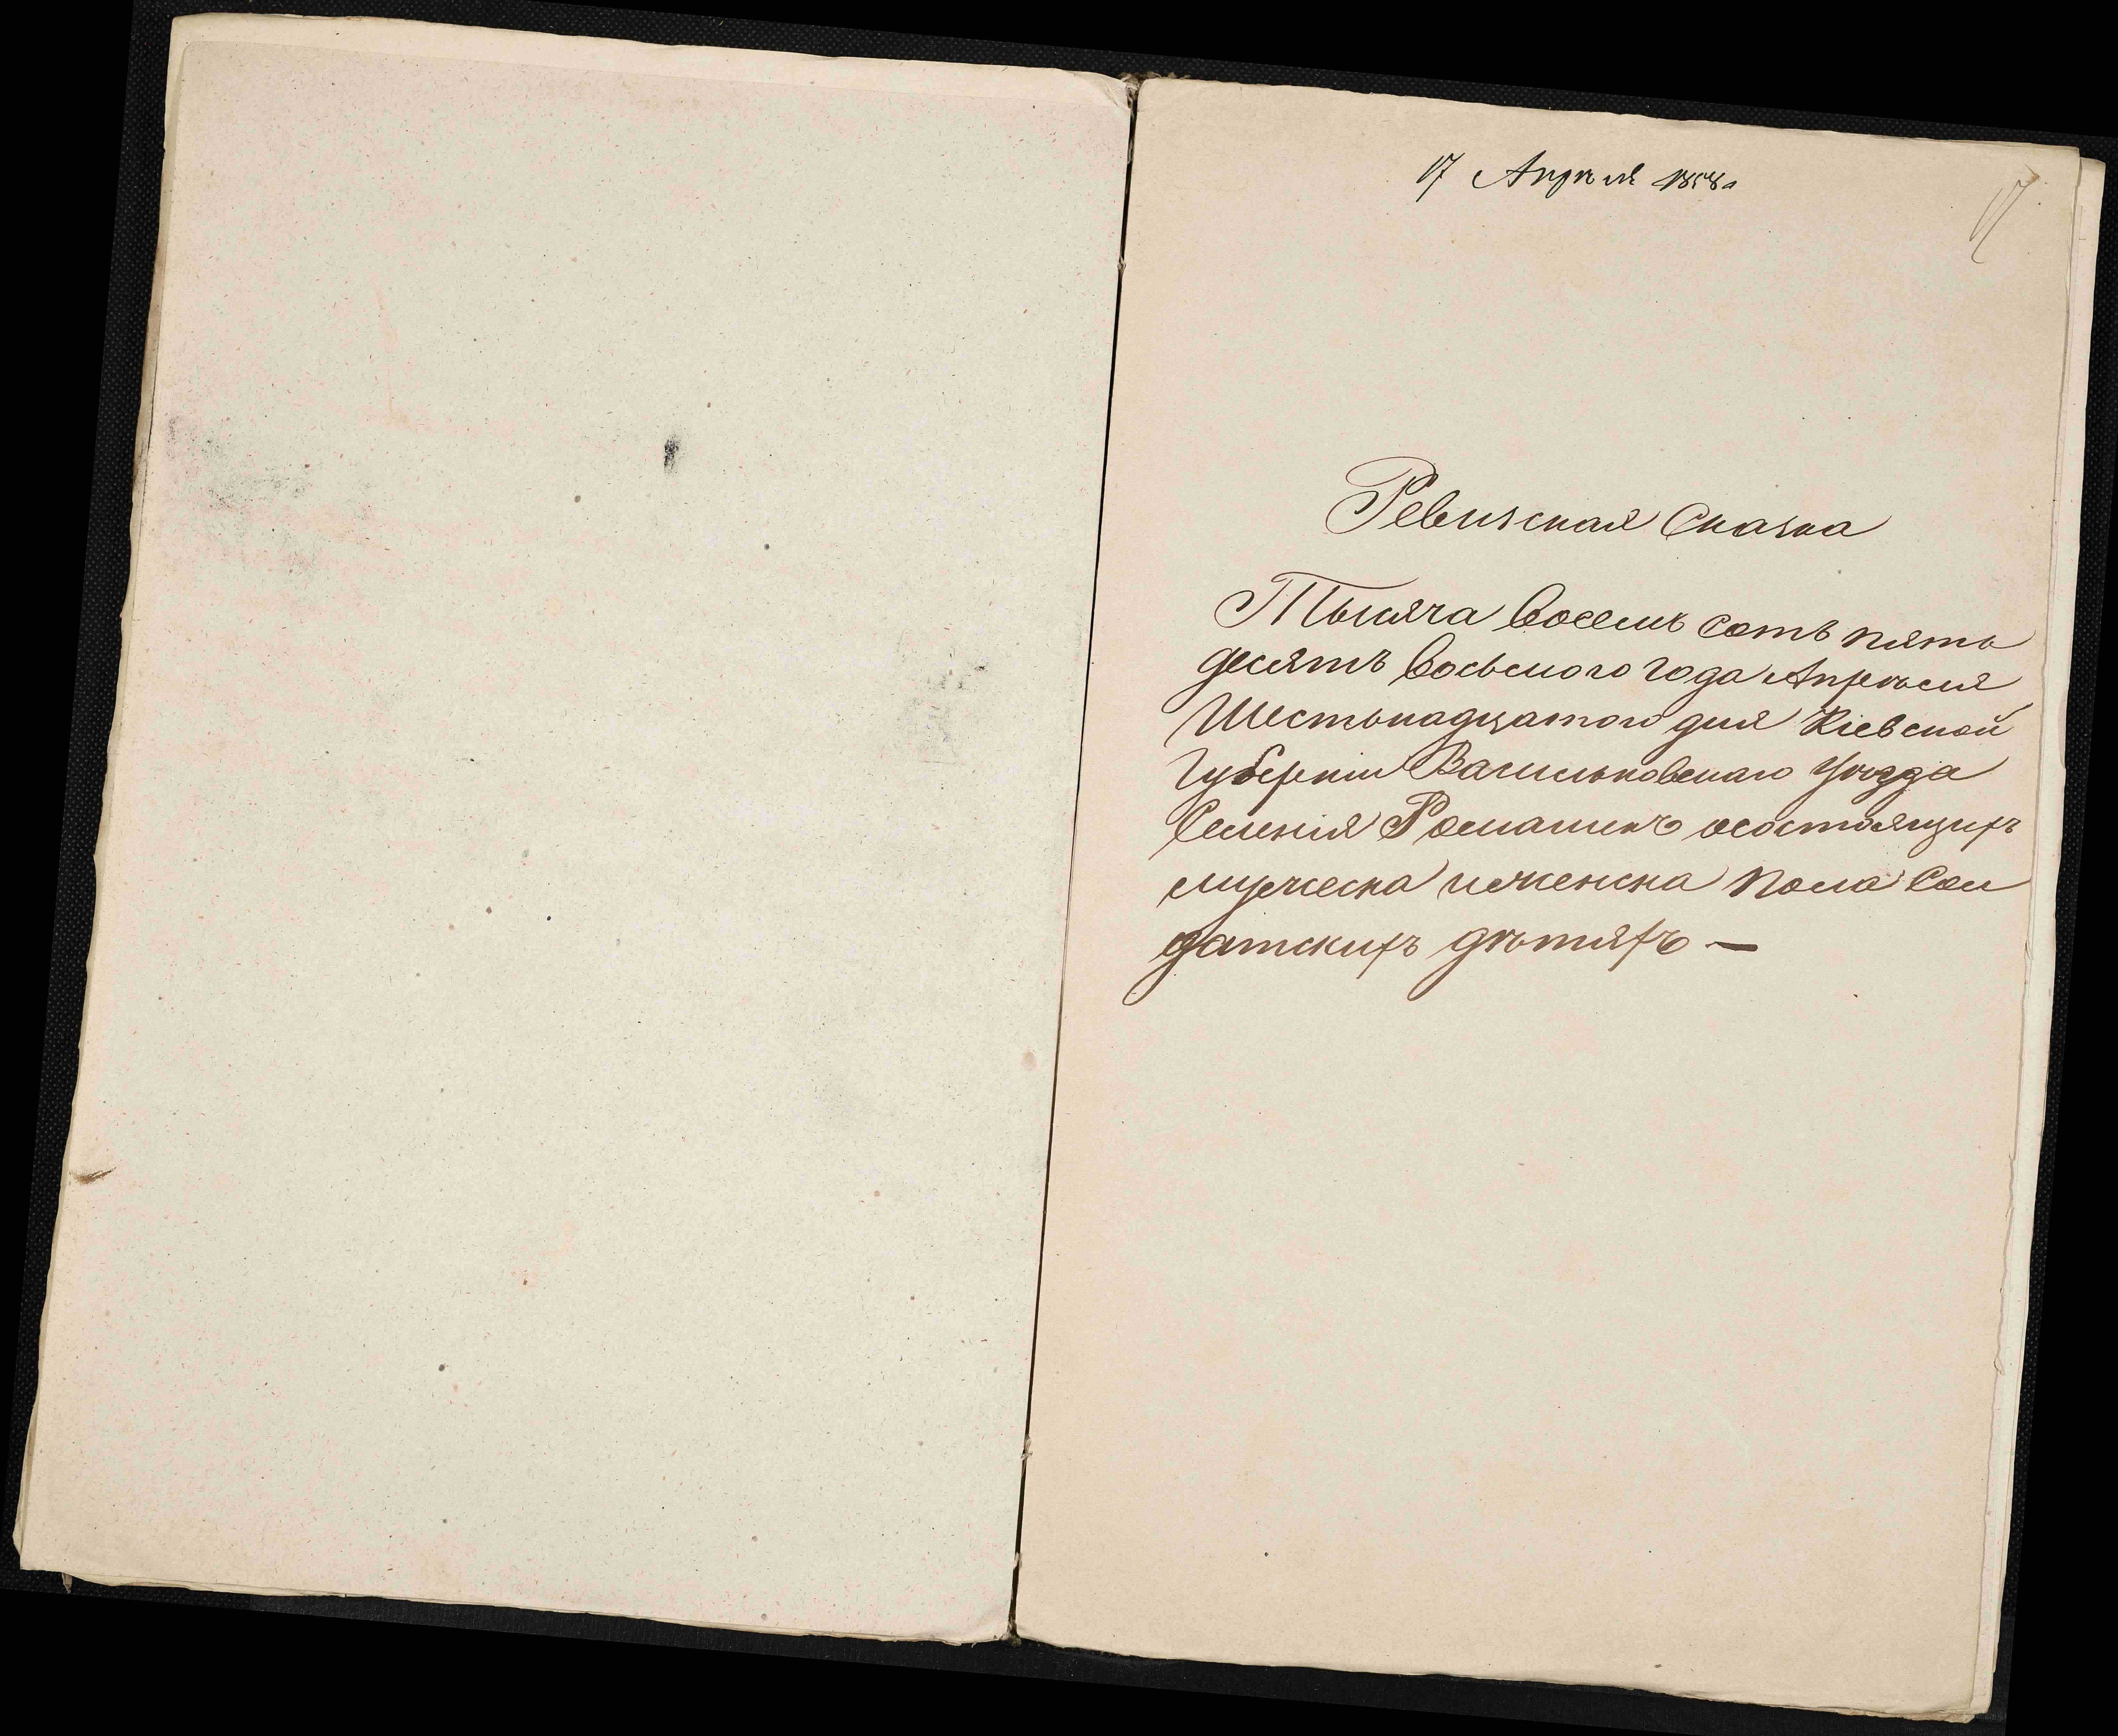 17 Апрѣля 1858 г
17
Ревизская Сказка
Тысяча Восемь сотъ пять
десятъ Восьмого года Апрѣля
Шестьнадцатого дня Кіевской
Губерніи Васильковскаго Уѣзда
Селенія Ромашекъ осостоящихъ
мужеска иженска пола Сол
датскихъ дѣтяхъ —